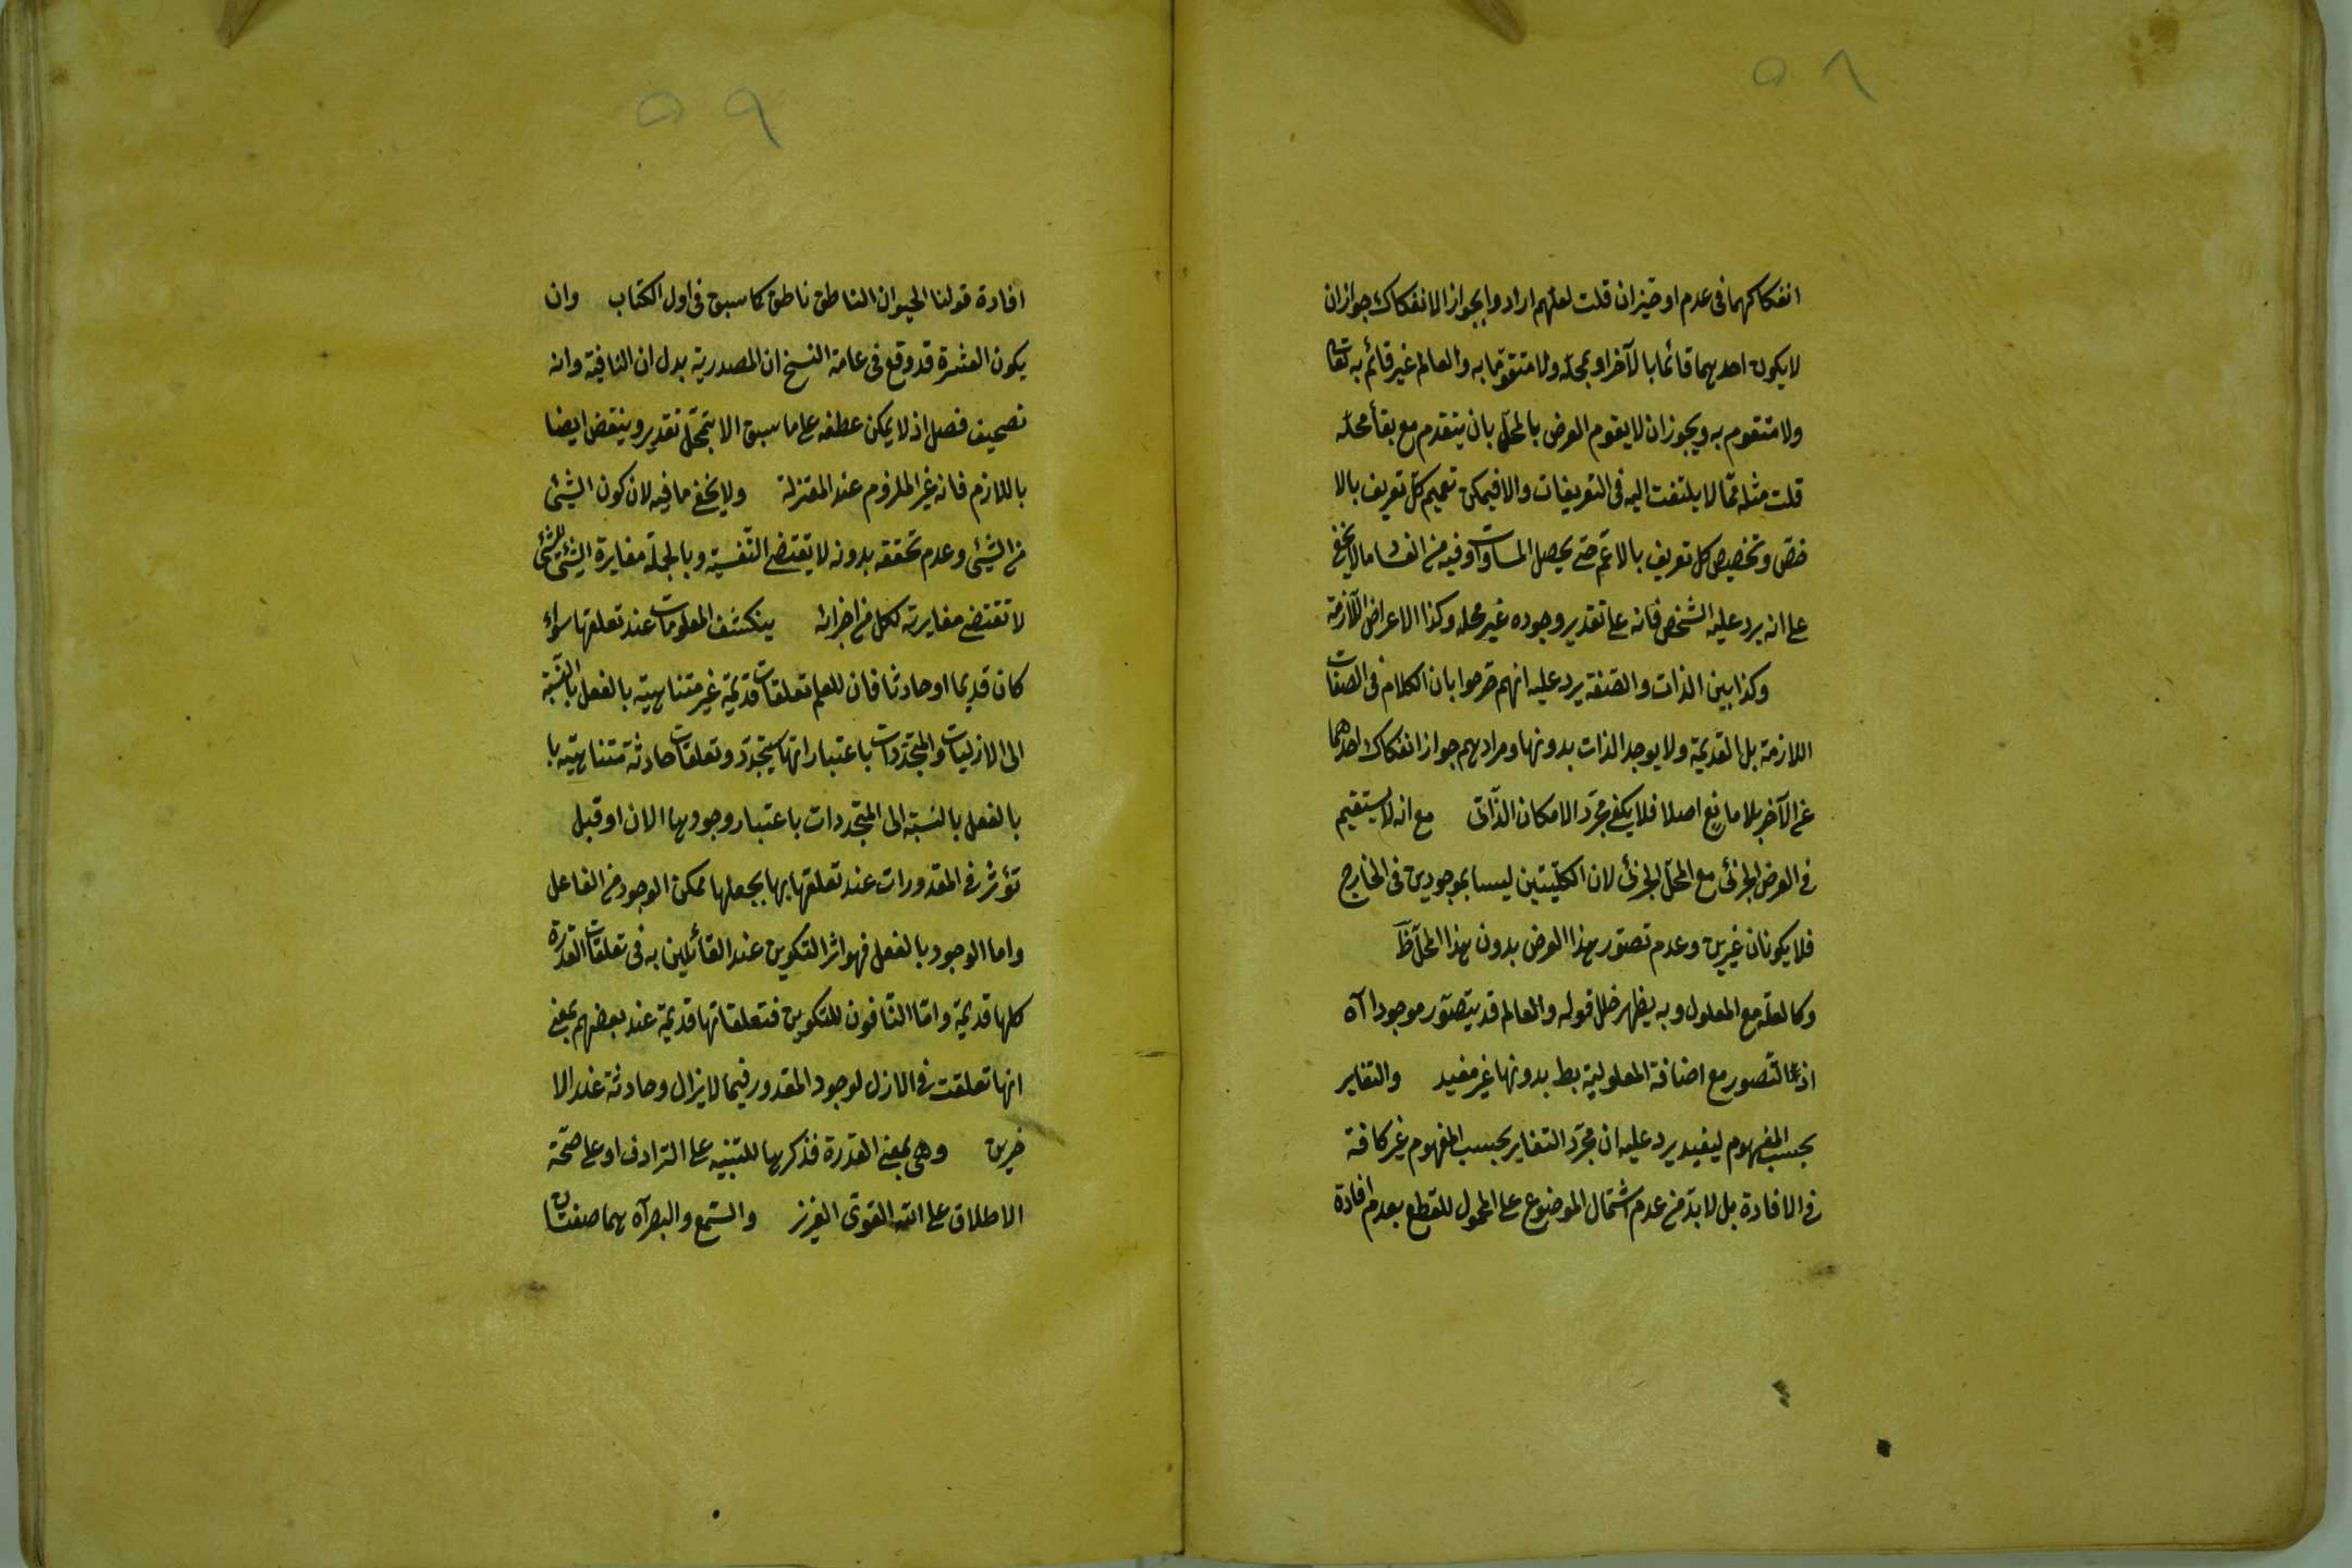 ٥٨
انفكاكهما فى عدم او حيز ان قلت لعلهم ارادوا بجواز الانفكاك جواز ان
لا يكون احدهما قائما بالآخر او بمحله ولا متقوما به والعالم غير قائم به تعالى
ولا متقوم به ويجوز ان لا يقوم العرض بالمحلّ بان ينعدم مع بقاء محله
قلت مثله ممّا لا يلتفت اليه فى التعريفات والا فيمكن تعميم كلّ تعريف بالا
خصّ وتخصيص كل تعريف بالاعمّ حتى يحصل المساواة وفيه من الفساد ما لا يخفى
على انه يرد عليه التشخص فانه على تقدير وجوده غير محله وكذا الاعراض اللّازمة
وكذا بين الذات والصّفة يرد عليه انهم صرّحوا بان الكلام فى الصفات
اللازمة بل القديمة ولا يوجد الذات بدونها ومرادهم جواز انفكاك احدهما
عن الآخر بلا مانع اصلا فلا يكفى مجرّد الامكان الذّاتى مع انه لا يستقيم
فى العرض الجزئى مع المحلّ الجزئى لان الكليّتين ليسا بموجودين فى الخارج
فلا يكونان غيرين وعدم تصوّر هذا العرض بدون هذا المحلّ ظ
وكالعلة مع المعلول وبه يظهر خلل قوله والعالم قد يتصوّر موجودا آه
اذ التّصور مع اضافة المعلولية بط بدونها غير مفيد والتغاير
بحسب المفهوم ليفيد يرد عليه ان مجرّد التغاير بحسب المفهوم غير كافة
فى الافادة بل لا بدّ من عدم اشتمال الموضوع على المحمول للقطع بعدم افادة
٥٩
افادة قولنا الحيوان الناطق ناطق كما سبق فى اول الكتاب وان
يكون العشرة قد وقع فى عامة النسخ ان المصدرية بدل ان النافية وانه
تصحيف فصل اذ لا يمكن عطفه على ما سبق الا بتمحّل تقدير وينتقض ايضا
باللازم فانه غير الملزوم عند المعتزلة ولا يخفى ما فيه لان كون الشئ
من الشئ وعدم تحققه بدونه لا يقتضى النفسية وبالجملة مغايرة الشئ للشئ
لا تقتضى مغايرته لكل من اجزائه ينكشف المعلومات عند تعلقها سواء
كان قديما او حادثا فان للعلم تعلقات قديمة غير متناهية بالفعل بالنسبة
الى الازليات والمتجدّدات باعتبار انها ستجدّد وتعلقات حادثة متناهية با
بالفعل بالنسبة الى المتجددات باعتبار وجودها الان او قبل
تؤثر فى المقدورات عند تعلقها بها بجعلها ممكن الوجود من الفاعل
واما الوجود بالفعل فهو اثر التكوين عند القائلين به فى تعلقات القدرة
كلها قديمة وامّا النّافون للتكوين فتعلقاتها قديمة عند بعضهم بمعنى
انها تعلقت فى الازل لوجود المقدور فيما لا يزال وحادثة عند الا
خرين وهى بمعنى القدرة فذكرها للتنبيه على الترادف او على صحّة
الاطلاق على الله القوىّ العزيز والسّمع والبصر آه هما صفتان